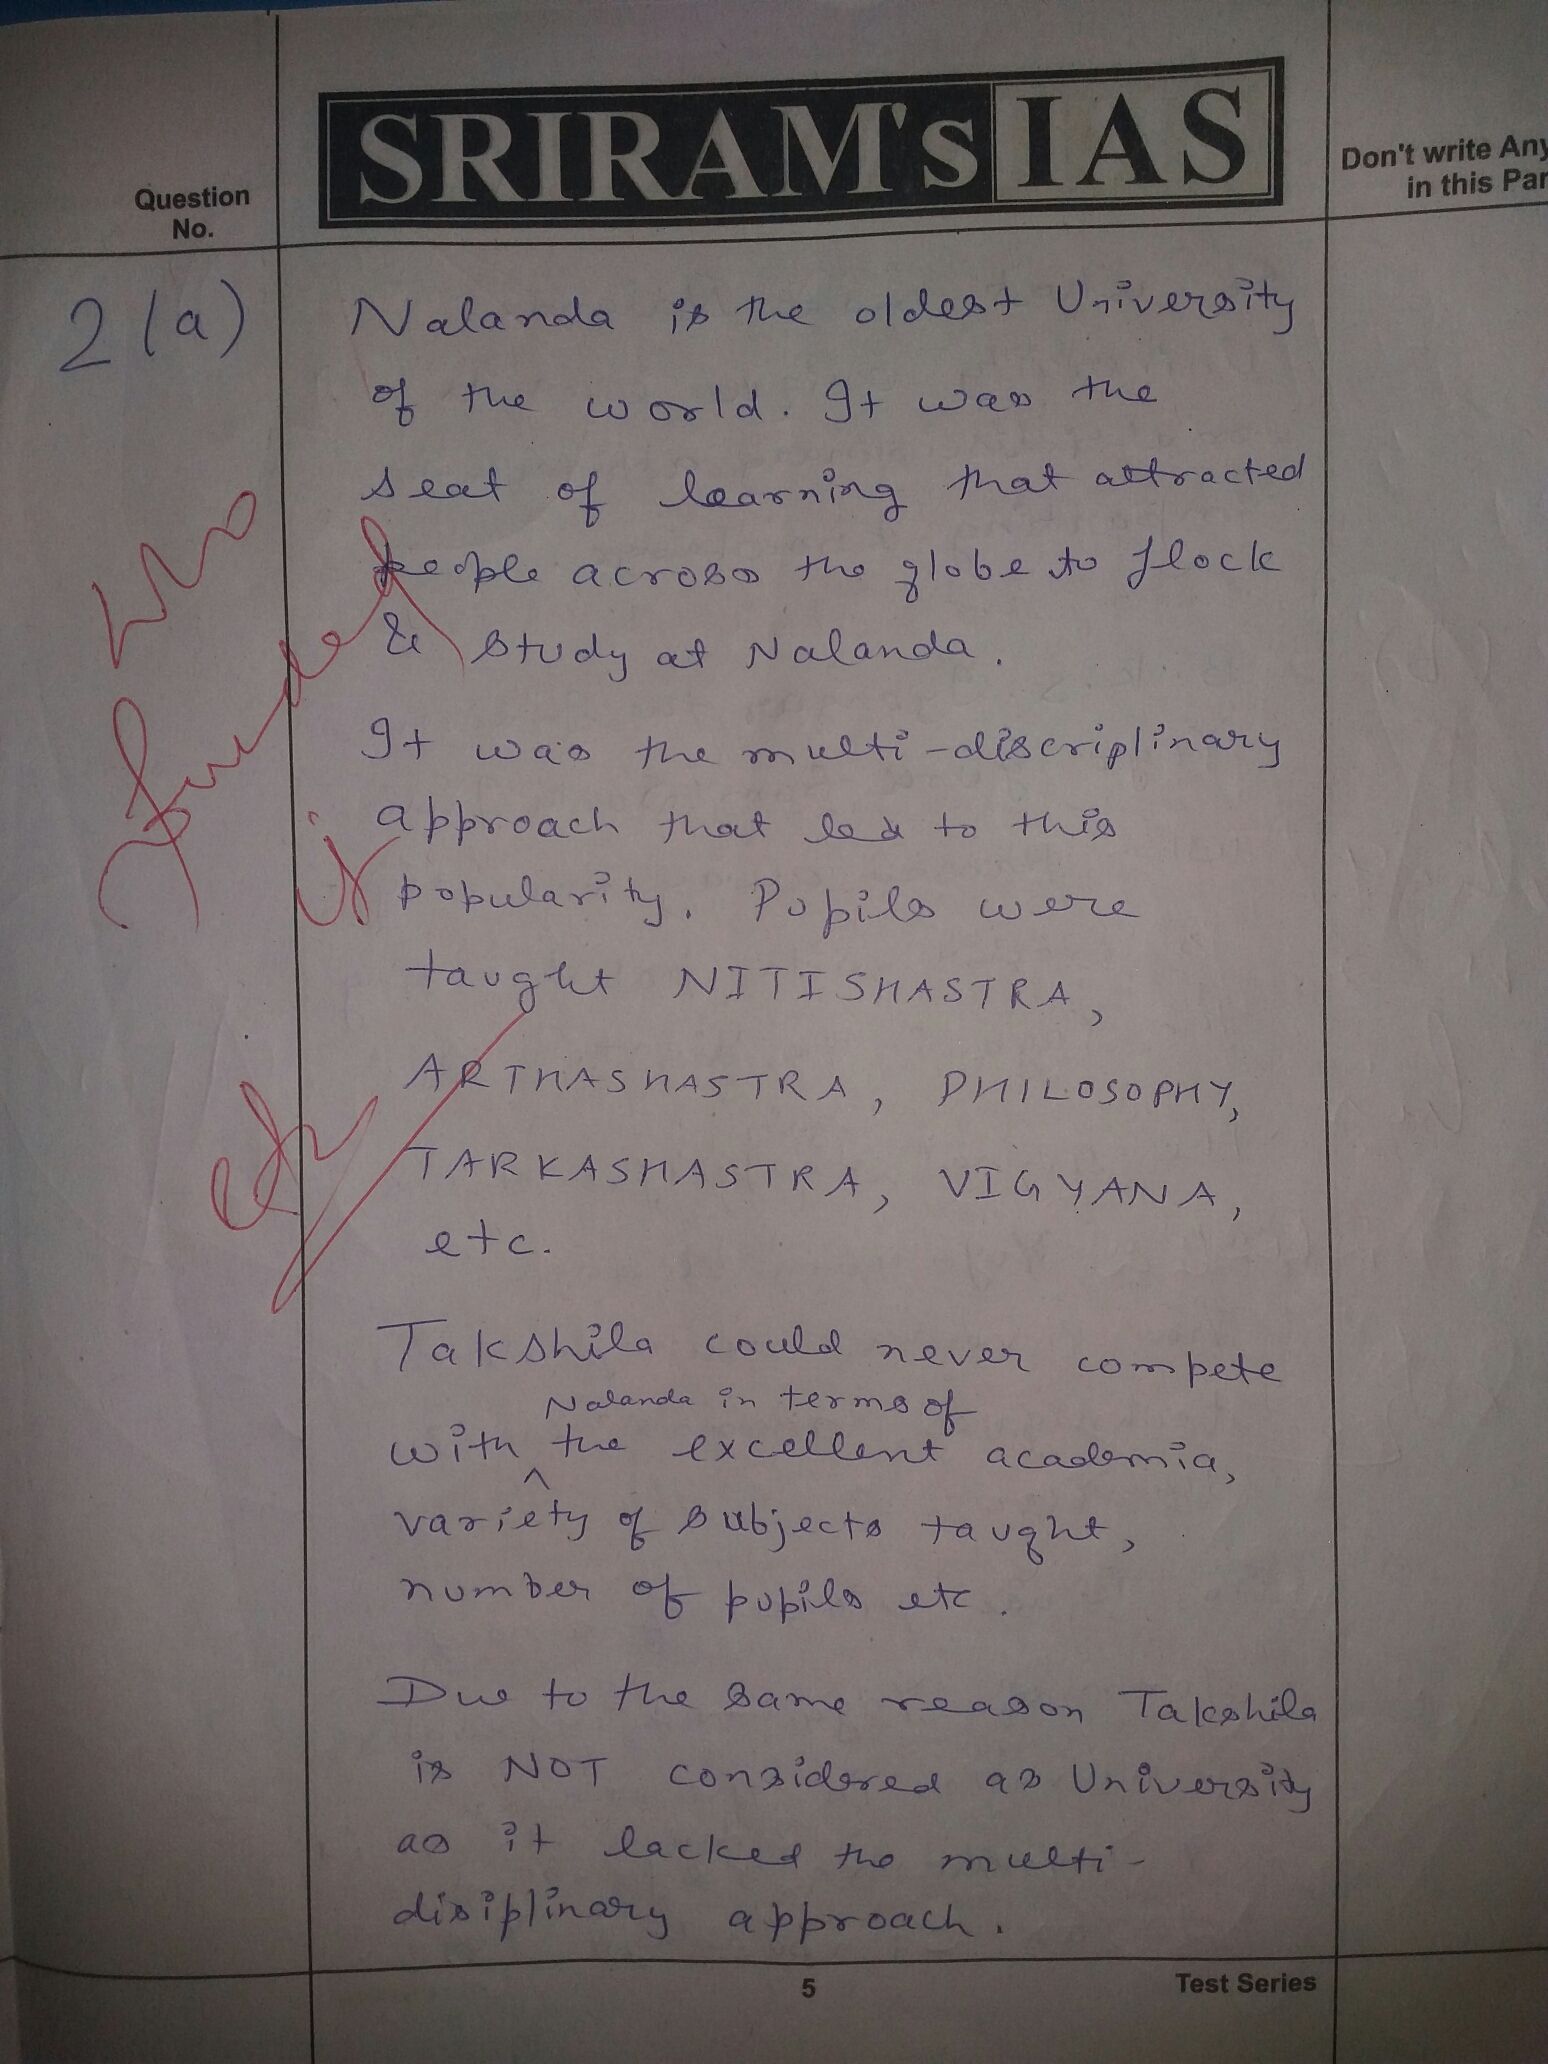 SRIRAM's IAS
Question
No.
Don't write Any
in this Par
2(a)
Nalanda is the oldest University
of the world. It was the
seat of learning that attracted
people across the globe to flock
& study at Nalanda.
It was the multi-discriplinary
approach that led to this
popularity. Pupils were
taught NITISHASTRA,
ARTHASHASTRA, PHILOSOPHY,
TARKASHASTRA, VIGYANA,
etc.
Takshila could never compete
Nalanda in terms of
with ^ the excellent academia,
variety of subjects taught,
number of pupils etc.
Due to the same reason Takshila
is NOT considered as University
as it lacked the multi-
disiplinary approach.
Who
funded
it
etc
5
Test Series